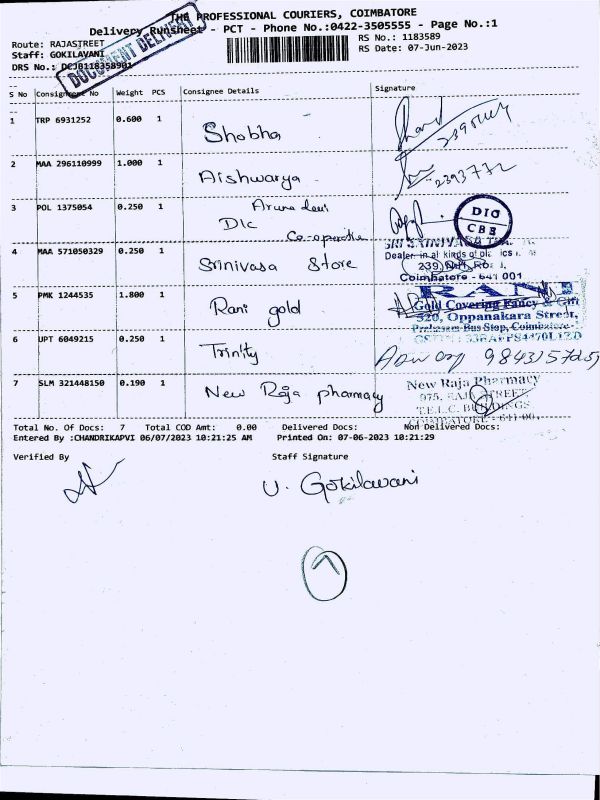 THE PROFESSIONAL COURIERS, COIMBATORE
Delivery Runsheet - PCT - Phone No.:0422-3505555 - Page No.:1
DOCUMENT DELIVERY
Route: RAJASTREET
Staff: GOKILAVANI
RS No.: 1183589
RS Date: 07-Jun-2023
S No Consignment No Weight PCS Consignee Details Signature
1 TRP 6931252 0.600 1 Shobha
2 MAA 296110999 1.000 1 Aishwarya 2393772
3 POL 1375054 0.250 1 Aruna devi
DIC
Co-operative
DIC
CBE
4 MAA 571050329 0.250 1 Srinivasa Store
Coimbatore - 641 001
5 PMK 1244535 1.800 1 Rani gold
Gold Covering Fancy & Gift
520, Oppanakara Street,
Prakasam Bus Stop, Coimbatore-
6 UPT 6049215 0.250 1 Trinity
7 SLM 321448150 0.190 1 New Raja pharmacy
New Raja Pharmacy
975, RAJA STREET,
T.E.L.C. BUILDINGS
COIMBATORE - 641 001
Total No. Of Docs: 7 Total COD Amt: 0.00 Delivered Docs: Non Delivered Docs:
Entered By :CHANDRIKAPVI 06/07/2023 10:21:25 AM Printed On: 07-06-2023 10:21:29
Verified By Staff Signature
U. Gokilavani